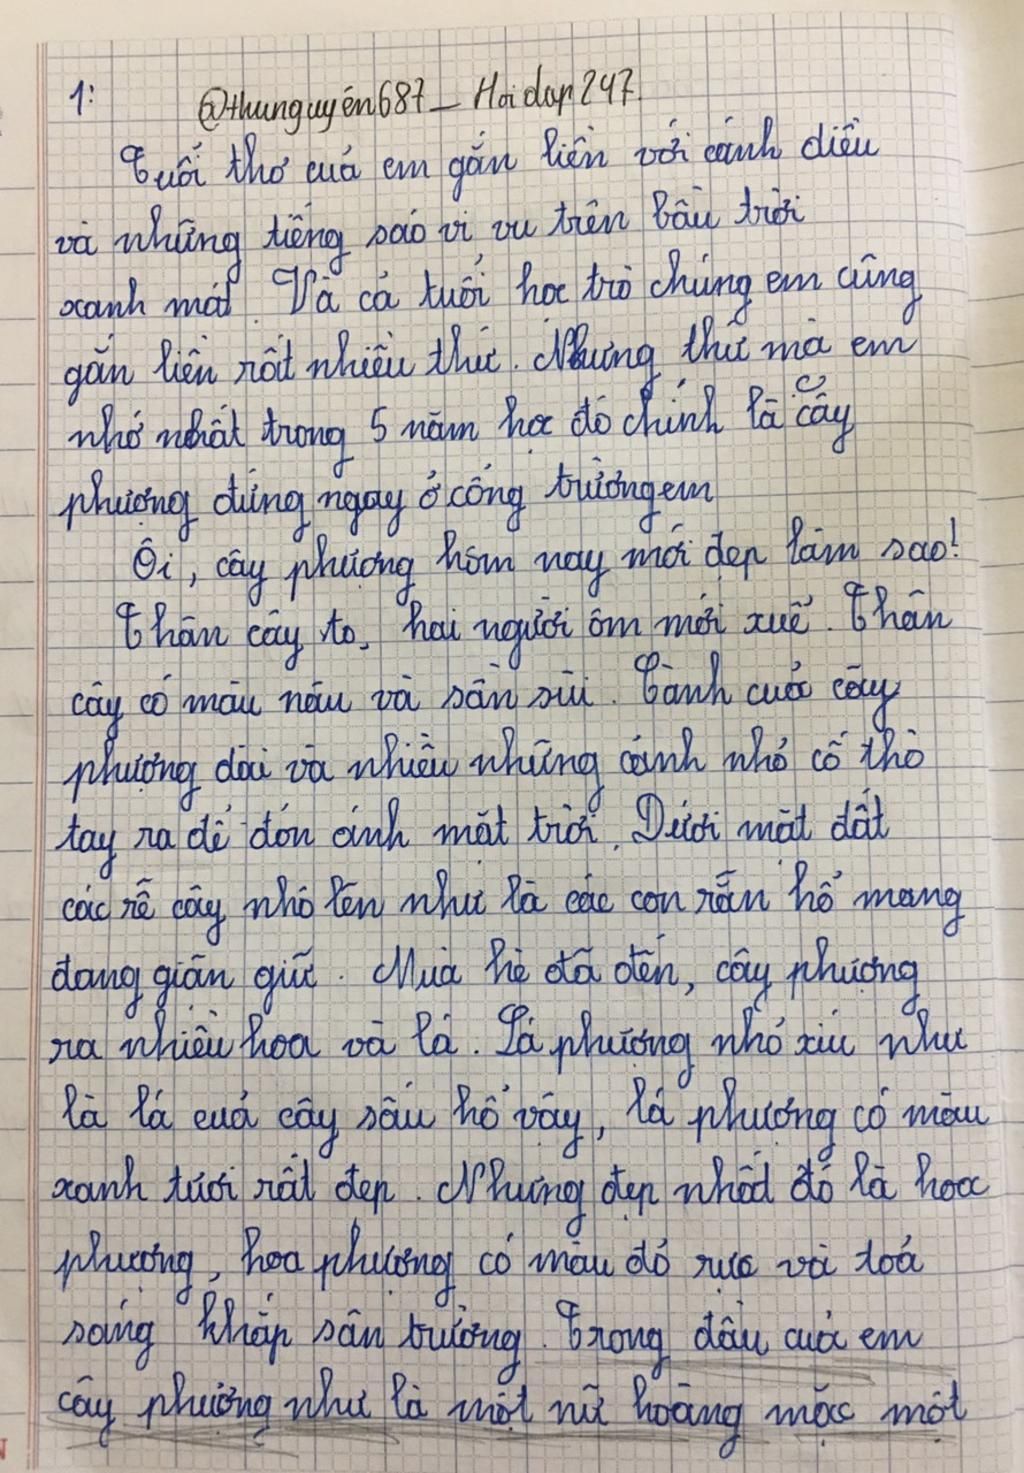 1: @thunguyên687_Hoidap247.
Tuổi thơ của em gắn liền với cánh diều
và những tiếng sáo vi vu trên bầu trời
xanh mát. Và cả tuổi học trò chúng em cũng
gắn liền rất nhiều thứ. Nhưng thứ mà em
nhớ nhất trong 5 năm học đó chính là cây
phượng đứng ngay ở cổng trường em
Ôi, cây phượng hôm nay mới đẹp làm sao!
Thân cây to, hai người ôm mới xuể. Thân
cây có màu nâu và sần sùi. Cành cuả cây
phượng dài và nhiều những cành nhỏ cố thò
tay ra để đón ánh mặt trời. Dưới mặt đất
các rễ cây nhô lên như là các con rắn hổ mang
đang giận giữ. Mùa hè đã đến, cây phượng
ra nhiều hoa và lá. Lá phượng nhỏ xíu như
là lá cuả cây sấu hổ vậy, lá phượng có màu
xanh tươi rất đẹp. Nhưng đẹp nhất đó là hoa
phượng, hoa phượng có màu đỏ rực và toả
sáng khắp sân trường. Trong đầu cuả em
cây phượng như là một nữ hoàng mặc một